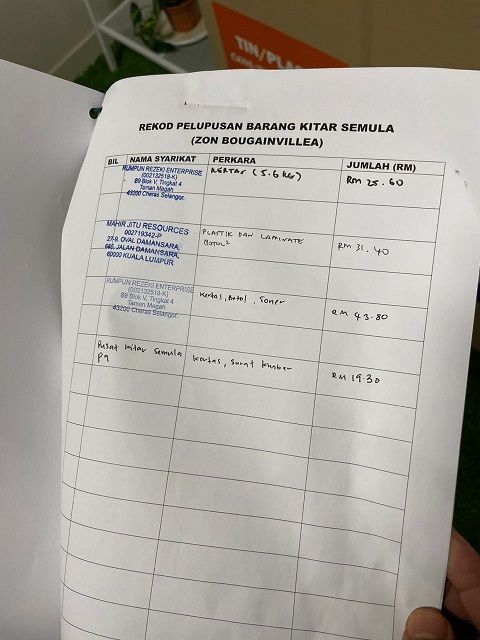 TIN/PLA
REKOD PELUPUSAN BARANG KITAR SEMULA
(ZON BOUGAINVILLEA)
BIL NAMA SYARIKAT PERKARA JUMLAH (RM)
RUMPUN REZEKI ENTERPRISE
(002132518-K)
B9 Blok V, Tingkat 4
Taman Megah
43200 Cheras Selangor.
KERTAS (5.6 kg)
RM 25.60
MAHIR JITU RESOURCES
002719342-P
27-9, OVAL DAMANSARA,
685, JALAN DAMANSARA,
60000 KUALA LUMPUR
PLASTIK DAN LAMINATE
BOTOL²
RM 31.40
RUMPUN REZEKI ENTERPRISE
(002132518-K)
B9 Blok V, Tingkat 4
Taman Megah
43200 Cheras Selangor.
Kertas, Botol, Toner
RM 43.80
Pusat Kitar Semula
P9
kertas, surat khabar
RM 19.30